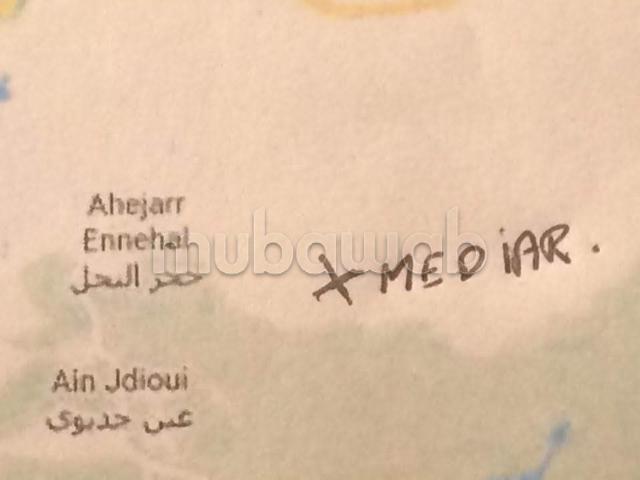 Ahejarr
Ennehal
حجر النحل
mubawab
X MEDIAR.
Ain Jdioui
عين جديوي